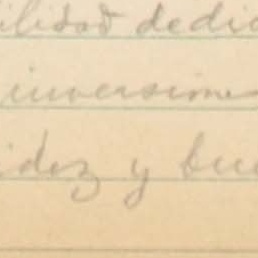 ilidad dedic
inversiones
idez y bue